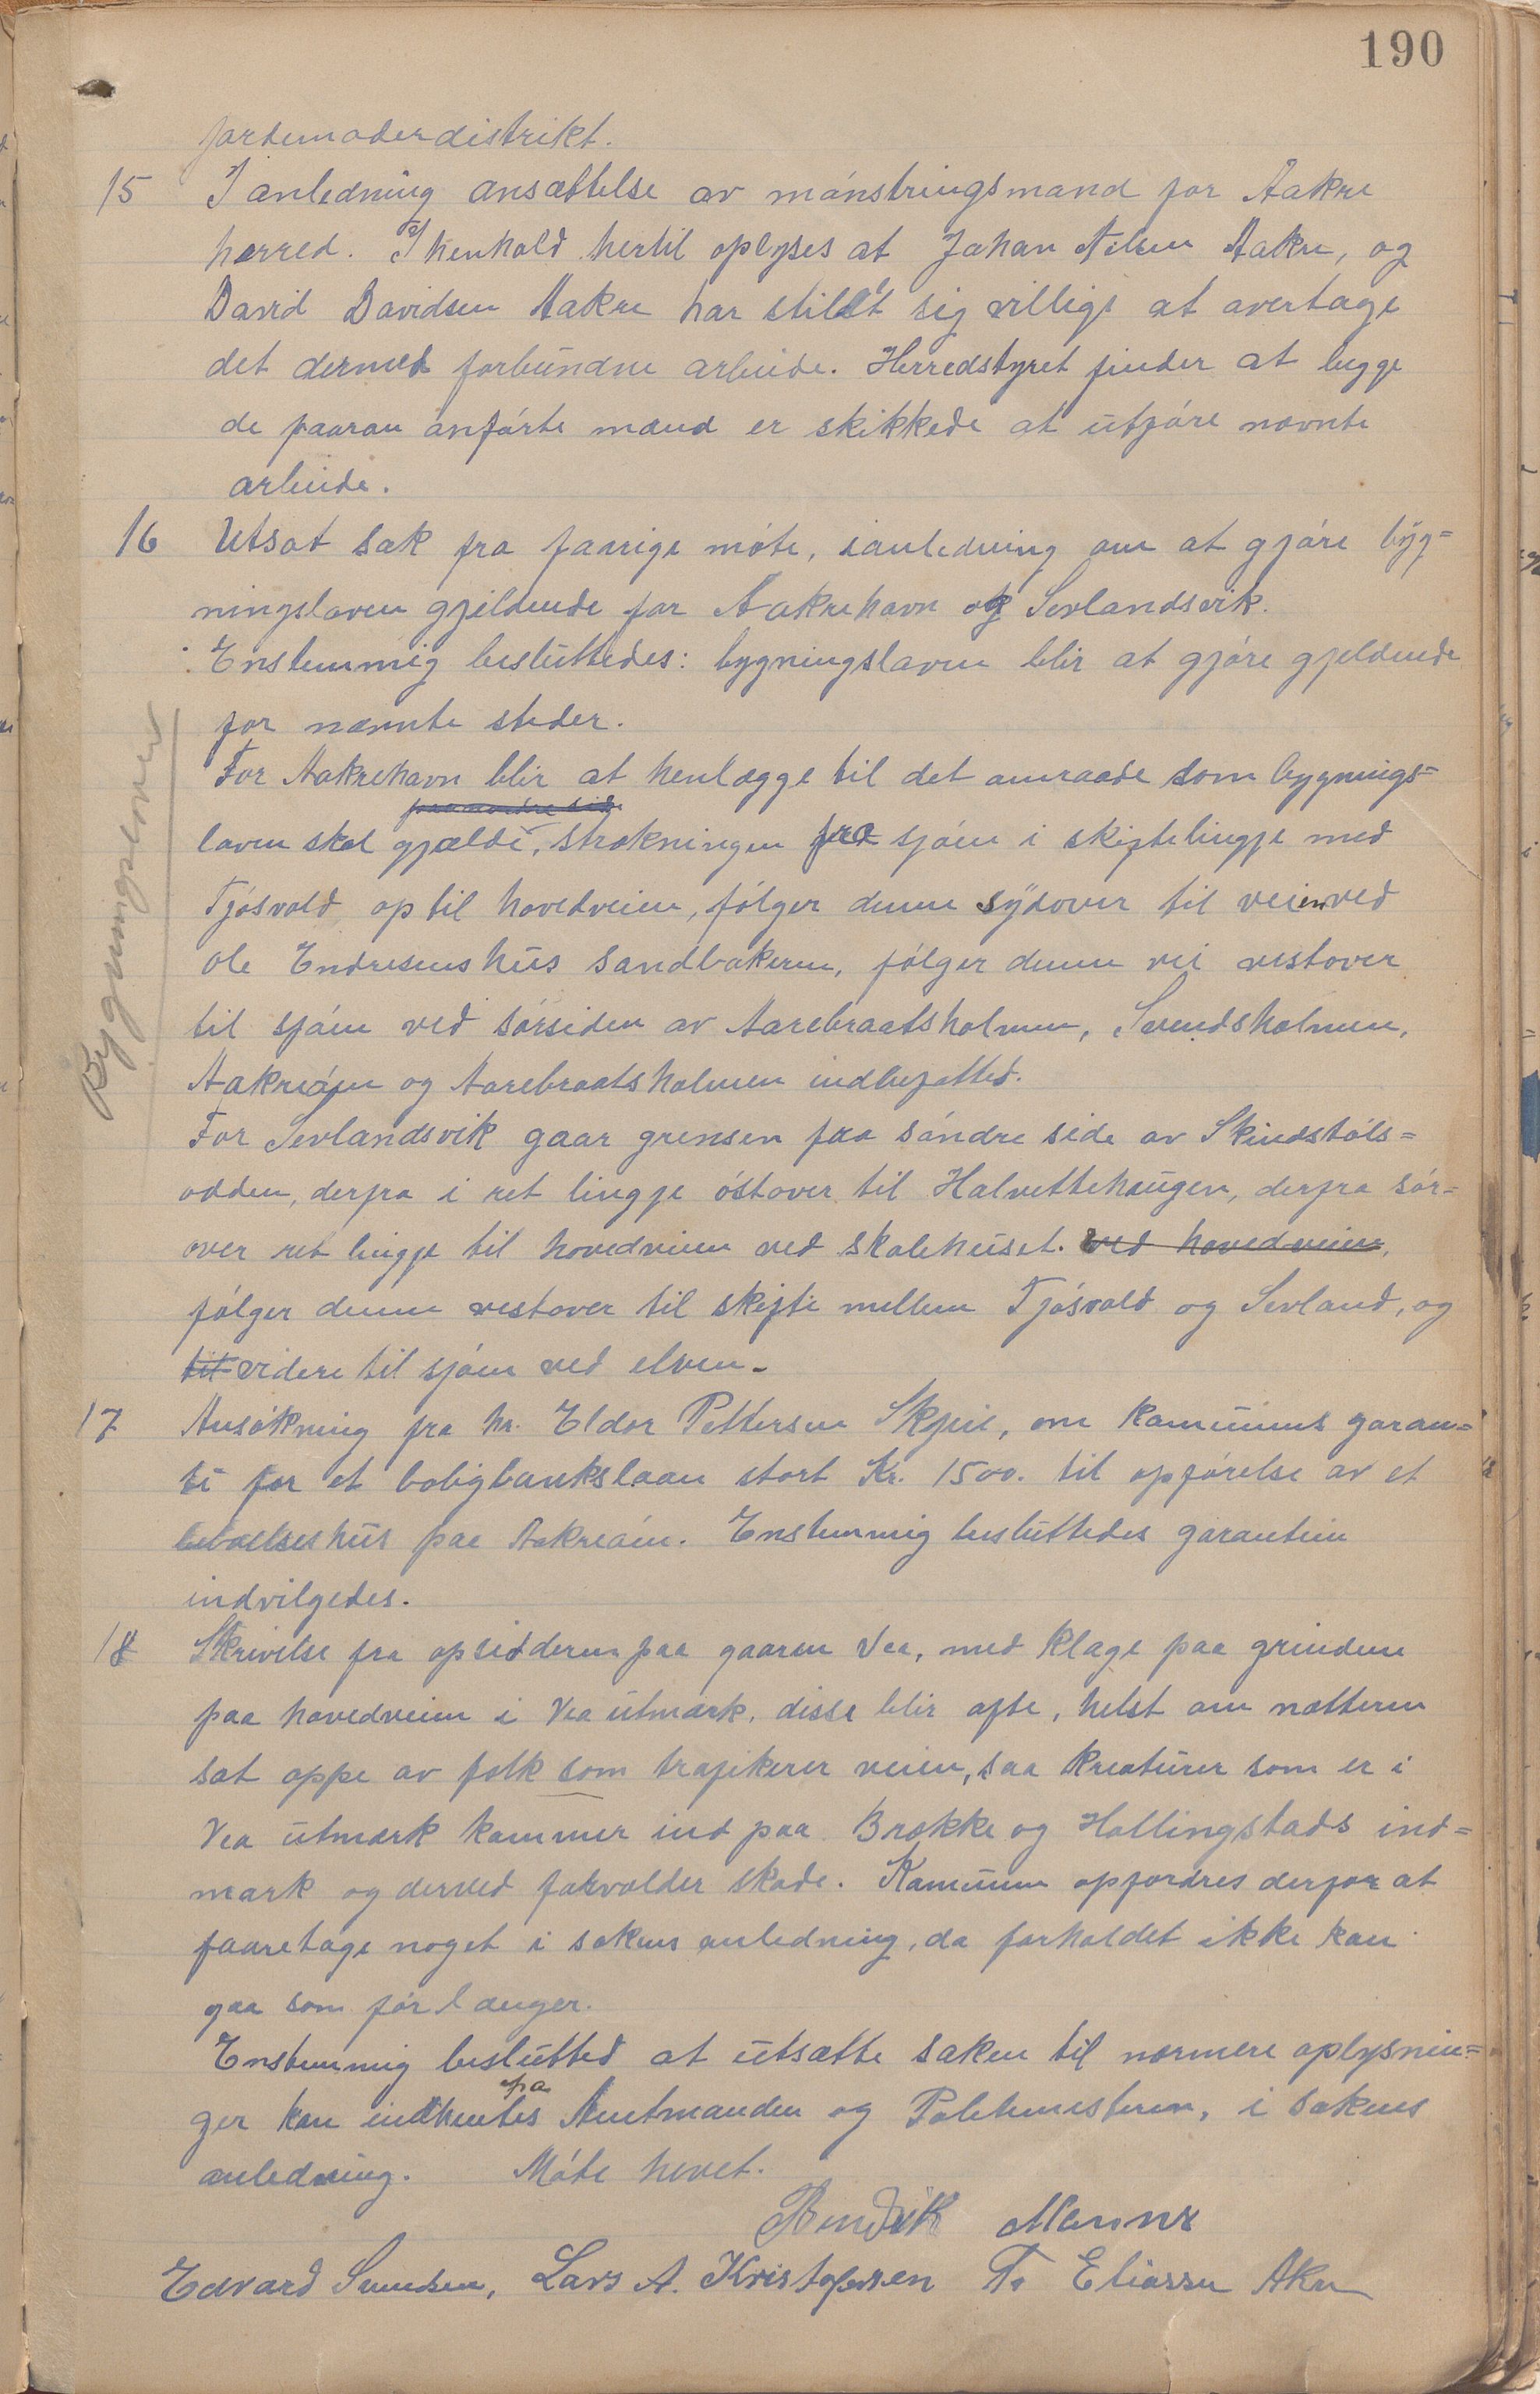 190
jordemoderdistrikt.
15 I anledning ansættelse av mónstringsmand for Aakre
herred. I henhold hertil oplyses at Johan Nilsen Aakre, og
David Davidsen Aakre har stillet sig villige at overtage
det dermed forbundne arbeide. Herredstyret finder at begge
de paaran anfórte mænd er skikkede at utfóre nævnte
arbeide.
16 Utsat sak fra forrige móte, ianledning om at gjóre byg=
ningsloven gjeldende for Aakrehavn og Sevlandsvik.
Enstemmig besluttedes: bygningsloven blir at gjóre gjeldende
for nævnte steder.
Bygningsloven
For Aakrehavn blir at henlægge til det omraade som bygnings=
paa nordre side
loven skal gjælde, strækningen fra sjóen i skiftelingje med
Tjósvold op til hovedveien, fólger denne sydover til veien ved
Ole Endresens hus Sandbakeren, fólger denne vei vestover
til sjóen ved sórsiden av Aarebraatsholmen, Svendsholmen,
Aakreóen og Aarebraatsholmen indbefatted.
For Sevlandsvik gaar grensen fra sóndre side av Skindstóls=
odden, derfra i ret lingje óstover til Halvettehaugen, derfra sór=
over ret lingje til hovedveien ved skolehuset. ved hovedveien,
fólger denne vestover til skifte mellem Tjósvold og Sevland, og
til videre til sjóen ved elven.
17 Ansókning fra hr. Eldor Pettersen , om kommunens garan=
ti for et boligbankslaan stort Kr. 1500. til opfórelse av et
bebóelseshus paa Aakreóen. Enstemmig besluttedes garantien
indvilgedes.
18 Skrivelse fra opsidderne paa gaaren Vea, med klage paa grindene
paa hovedveien i Vea utmark, disse blir ofte, helst om nætterne
sat oppe av folk som trafikerer veien, saa kreaturer som er i
Vea utmark kommer ind paa Brekke og Hollingstads ind=
mark og derved forvolder skade. Komunen opfordres derfor at
foaretage noget i sakens anledning, da forholdet ikke kan
gaa som fór længer.
Enstemmig beslutted at utsætte saken til nærmere oplysnin=
fra
ger kan indhentes Amtmanden og Politimesteren, i sakens
anledning. Móte hevet.
Bendik Mannes
Edvard Svendsen, Lars A. Kristofersen T. Eliassen Akre